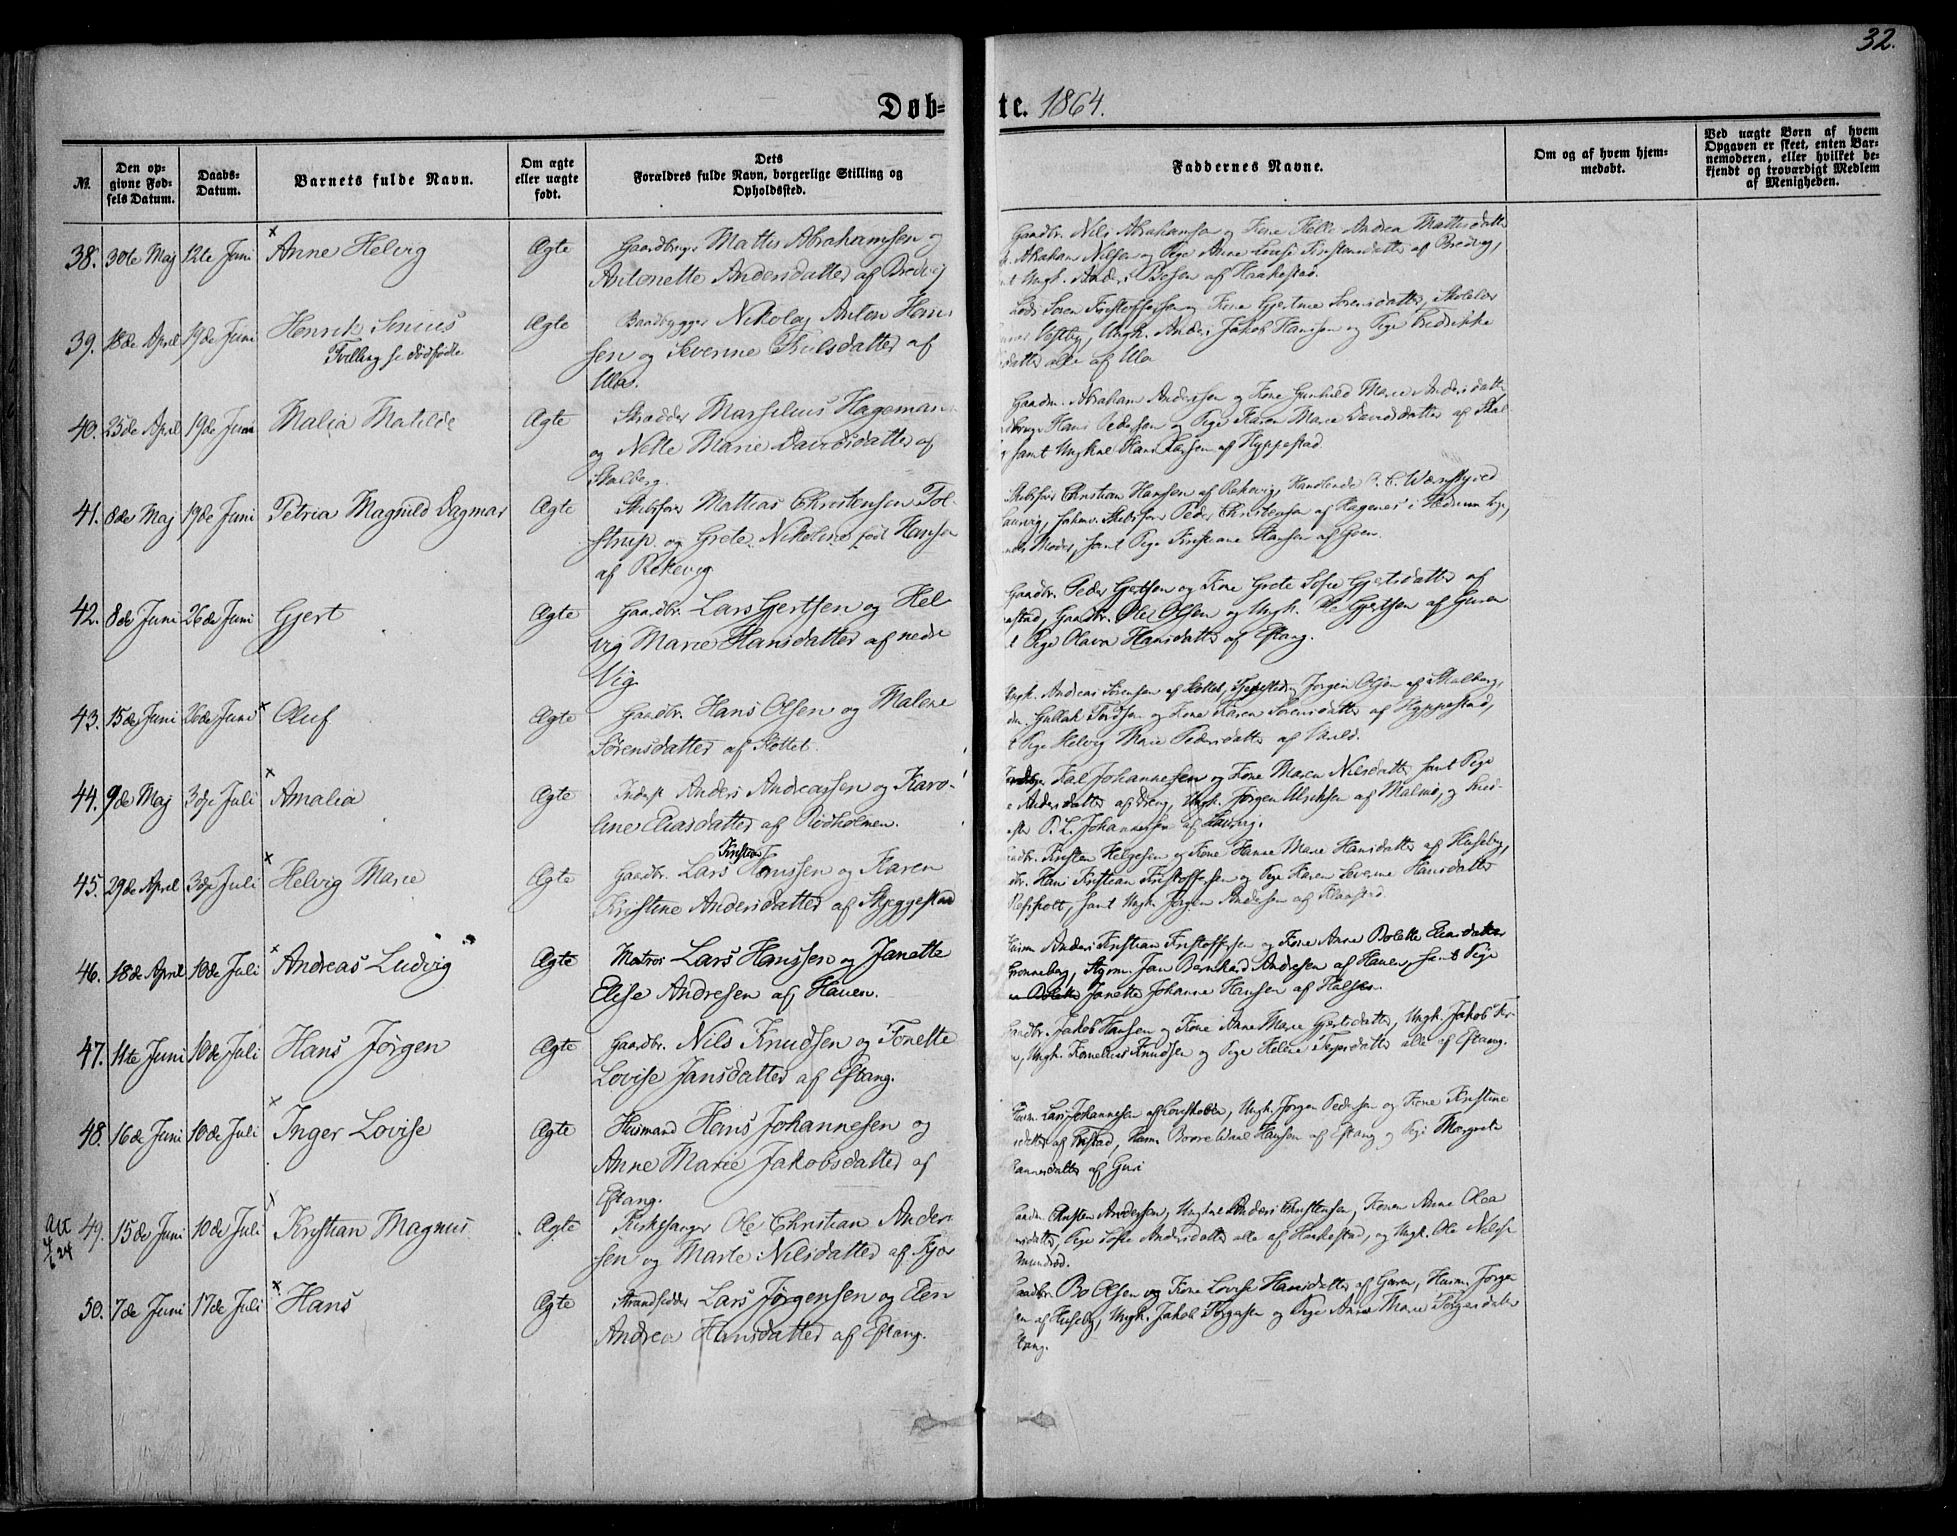 32.
Døb= te. 1864.
№.
Den op-
givne Fød-
sels Datum.
Daabs-
Datum.
Barnets fulde Navn.
Om ægte
eller uægte
født.
Dets
Forældres fulde Navn, borgerlige Stilling og
Opholdssted.
Faddernes Navne.
Om og af hvem hjem-
medøbt.
Ved uægte Børn af hvem
Opgaven er skeet, enten Bar-
nemoderen, eller hvilket be-
kjendt og troværdigt Medlem
af Menigheden.
38. 30te Maj 12te Juni Anne Helvig Ægte Gaardbruger Mattis Abrahamsen og
Antonette Andersdatter af Bredvej
Gaardbr. Nils Abrahamsen og Kone Helle Andrea Mattisdatter
Abraham Nilsen og Pige Anne Lovise Kristensdatter af Bredvej,
Ungk. Anders Boesen af Haakestad.
39. 18de April 19de Juni Henrik Senius
Tvilling se dødfødte
Ægte Baadbygger Nikolay Anton Han-
sen og Severine Trulsdatter af
Ula.
Lods Søren Kristoffersen og Kone Gjertine Sørensdatter,
Ungk. Anders Jakob Hansen og Pige Fredrikke
datter alle af Ula
40. 23de April 19de Juni Malia Matilde Ægte Skrædder Marselius Hageman
og Nelle Marie Davidsdatter af
Skalberg.
Gaardm. Abraham Andersen og Kone Gunhild Marie Andersdatter
Hans Pedersen og Pige Karen Marie Davidsdatter af Skal-
samt Ungkal Hans Larsen af Hyppestad.
41. 8de Maj 19de Juni Petria Magnild Dagmar Ægte Skibsfører Mattias Christensen Tol-
strup og Grete Nikoline født Hansen
af Rekevig
Skibsfører Christian Hansen af Rekevig, Handlende
Laurvig, Skibsfører Peder Christensen af Hagenes i Hedrum
Moder, samt Pige Kristiane Hansen af Goen.
42. 8de Juni 26de Juni Gjert Ægte Gaardbr. Lars Gjertsen og Hel-
vig Marie Hansdatter af nedre
Vig
Gaardbr. Peder Gjertsen og Kone Grete Sofie Gjertsdatter af
Gaardbr. Ole Olsen og Ungk. Ole Gjertsen af Guren
Pige Olava Hansdatter af Eftang.
43. 15de Juni 26de Juni × Oluf Ægte Gaardbr. Hans Olsen og Malene
Sørensdatter af Slottet.
Ungk. Andreas Sørensen af Slottet, Jørgen Olsen af Skalberg,
Gullak Tordsen og Kone Karen Sørensdatter af Hyppestad,
Pige Helvig Marie Pedersdatter af
44. 9de Maj 3die Juli × Amalia Ægte Inderst Anders Andreassen og Karo-
line Eliasdatter af Rødholmen.
Johannesen og Kone Maren Nilsdatter samt Pige
Andersdatter af Ungk. Jørgen Ulriksen af Malmø, og
P. L. Johannesen af Laurvig.
45. 29de April 3die Juli × Helvig Marie Ægte Gaardbr. Lars Kristian Hanssen og Karen
Kristine Andersdatter af Skjeggestad
Kristen Helgesen og Kone Hanne Marie Hansdatter af Huseby,
Hans Kristian Kristoffersen og Pige Karen Severine Hansdatter
samt Ungk. Jørgen Andersen af Klaastad.
46. 18de April 10de Juli × Andreas Ludvig Ægte Matros Lars Hanssen og Janette
Elise Andresen af Haven.
Husm Anders Kristian Kristoffersen og Kone Anne Bolette Eliasdatter
Grønneberg, Styrm. Jan Bernhard Andresen af Haven, samt Pige
Janette Johanne Hansen af Halsen.
47. 11te Juni 10de Juli Hans Jørgen Ægte Gaardbr. Nils Knudsen og Tonette
Lovise Jansdatter af Eftang.
Jakob Hansen og Kone Anne Marie Gjertsdatter, Ungk. Jakob
Ungk. Kornelius Knudsen og Pige Helene Torgersdatter alle af Eftang.
48. 16de Juni 10de Juli × Inger Lovise Ægte Husmand Hans Johannesen og
Anne Marie Jakobsdatter af
Eftang.
Husm. Lars Johannesen af Ungk. Jørgen Pedersen og Kone Kristine
Hansen af Eftang og Pige Margrete
Hannesdatter af Guri
49. 15de Juni 10de Juli × Kristian Magnus Ægte Kirkesanger Ole Christian Ander-
sen og Marte Nilsdatter af Kjær
Kristen Andersen, Ungkal Anders Christensen, Konen Anne Olea
Pige Sofie Andersdatter alle af Haakestad, og Ungk. Ole Nilsen
Mundrød.
50. 7de Juni 17de Juli × Hans Ægte Strandsidder Lars Jørgensen og Elen
Andrea Hansdatter af Eftang.
Gaardbr. Bo Olsen og Kone Lovise Hansdatter af Guren, Husm. Jørgen
af Huseby, Ungk. Jakob Torgersen og Pige Anne Marie Torgersdatter
Eftang.